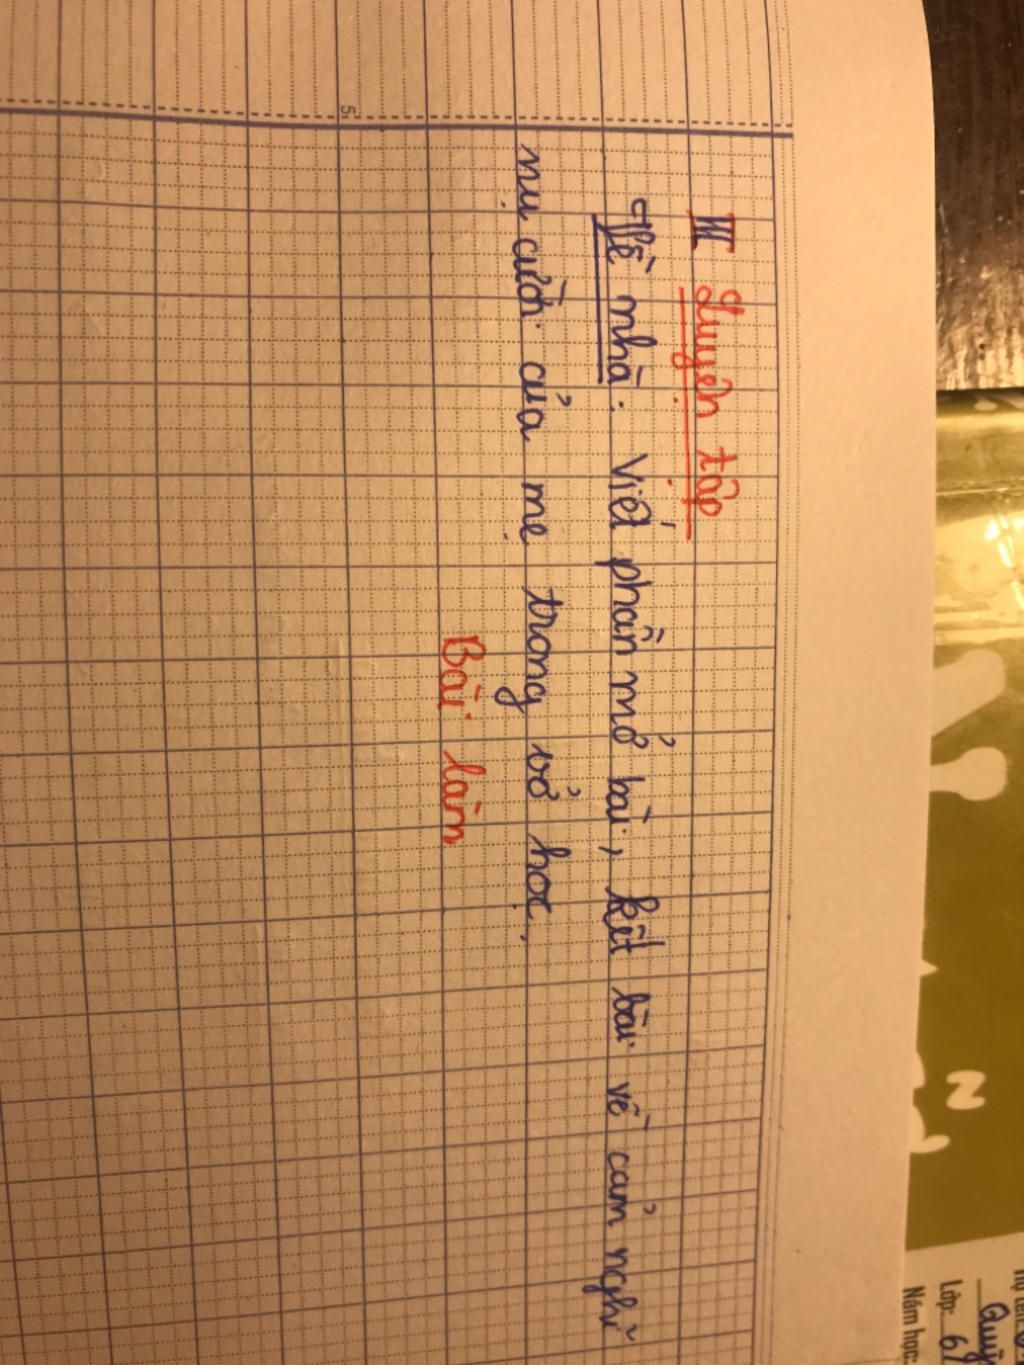 III Luyện tập
Về nhà: Viết phần mở bài, kết bài về cảm nghĩ
nụ cười của mẹ trong vở học.
Bài làm
5
N
Lớp: 6
Năm học